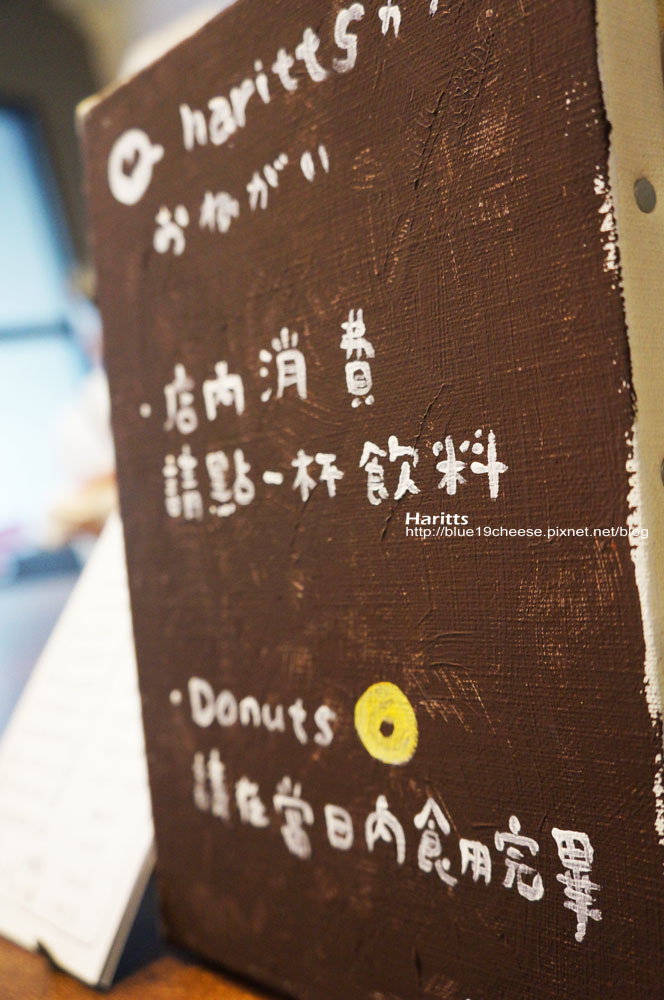 harittsから
おねがい
・店內消費
請點一杯飲料
Haritts
http://blue19cheese.pixnet.net/blog
・Donuts
請在當日內食用完畢